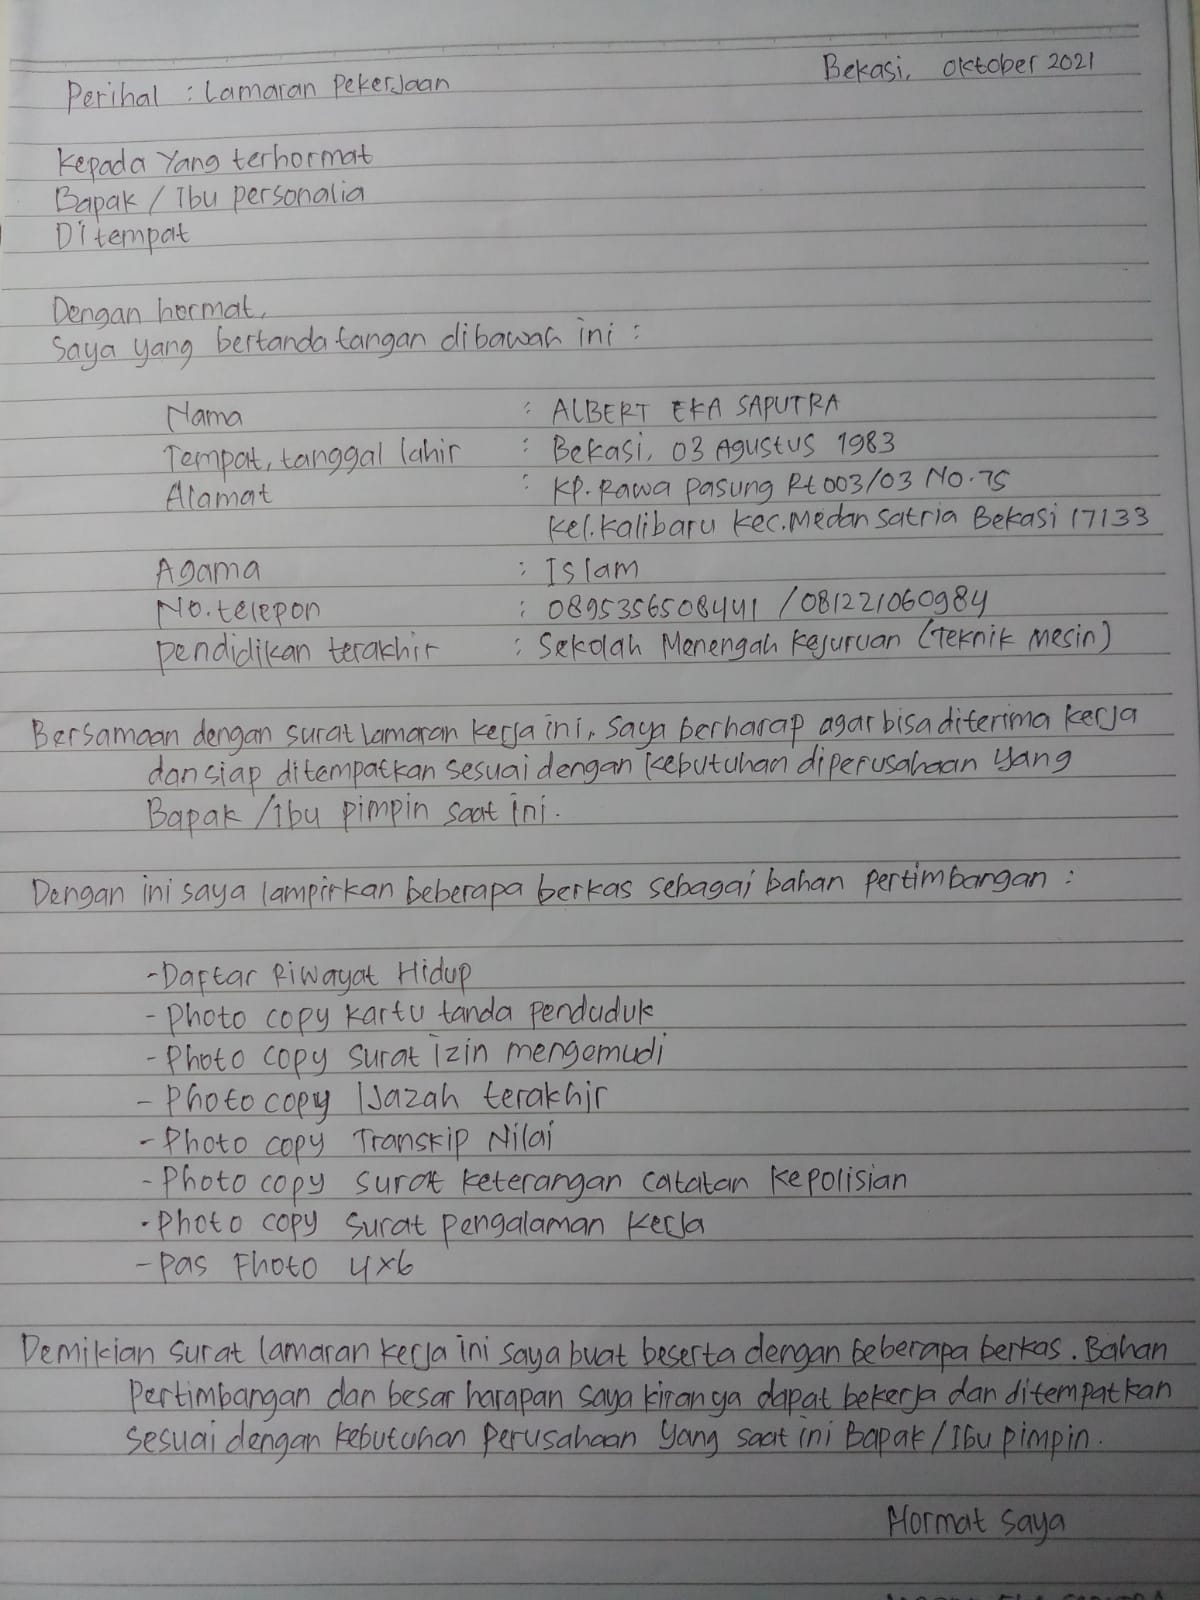 Perihal : Lamaran Pekerjaan
Bekasi, Oktober 2021
Kepada Yang terhormat
Bapak / Ibu personalia
Di tempat
Dengan hormat,
Saya yang bertanda tangan dibawah ini :
Nama : ALBERT EKA SAPUTRA
Tempat, tanggal lahir : Bekasi, 03 Agustus 1983
Alamat : KP. Rawa Pasung Rt 003/03 No. 75
Kel. Kalibaru Kec. Medan Satria Bekasi 17133
Agama : Islam
No. telepon : 0895356508441 / 081221060984
Pendidikan terakhir : Sekolah Menengah Kejuruan (Teknik Mesin)
Bersamaan dengan surat lamaran kerja ini, saya berharap agar bisa diterima kerja
dan siap ditempatkan sesuai dengan kebutuhan diperusahaan yang
Bapak / Ibu pimpin saat ini.
Dengan ini saya lampirkan beberapa berkas sebagai bahan pertimbangan :
- Daftar Riwayat Hidup
- Photo copy kartu tanda penduduk
- Photo copy surat izin mengemudi
- Photo copy Ijazah terakhir
- Photo copy Transkip Nilai
- Photo copy surat keterangan catatan kepolisian
- Photo copy surat pengalaman kerja
- Pas Fhoto 4x6
Demikian surat lamaran kerja ini saya buat beserta dengan beberapa berkas. Bahan
Pertimbangan dan besar harapan saya kiranya dapat bekerja dan ditempatkan
sesuai dengan kebutuhan perusahaan yang saat ini Bapak / Ibu pimpin.
Hormat saya